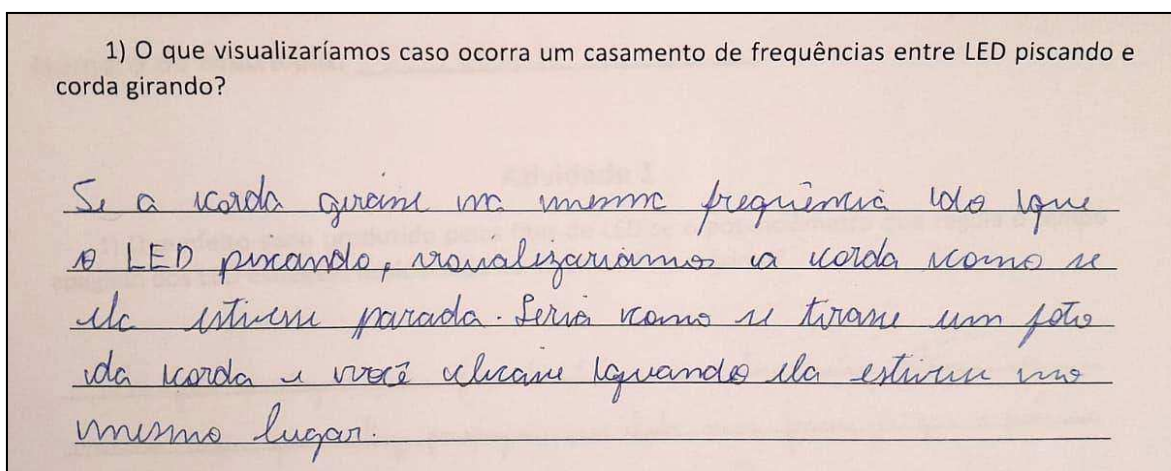 1) O que visualizaríamos caso ocorra um casamento de frequências entre LED piscando e
corda girando?
Se a corda girasse na mesma frequência do que
o LED piscando, visualizaríamos a corda como se
ela estivesse parada. Seria como se tirasse um foto
da corda e você clicasse quando ela estivesse no
mesmo lugar.